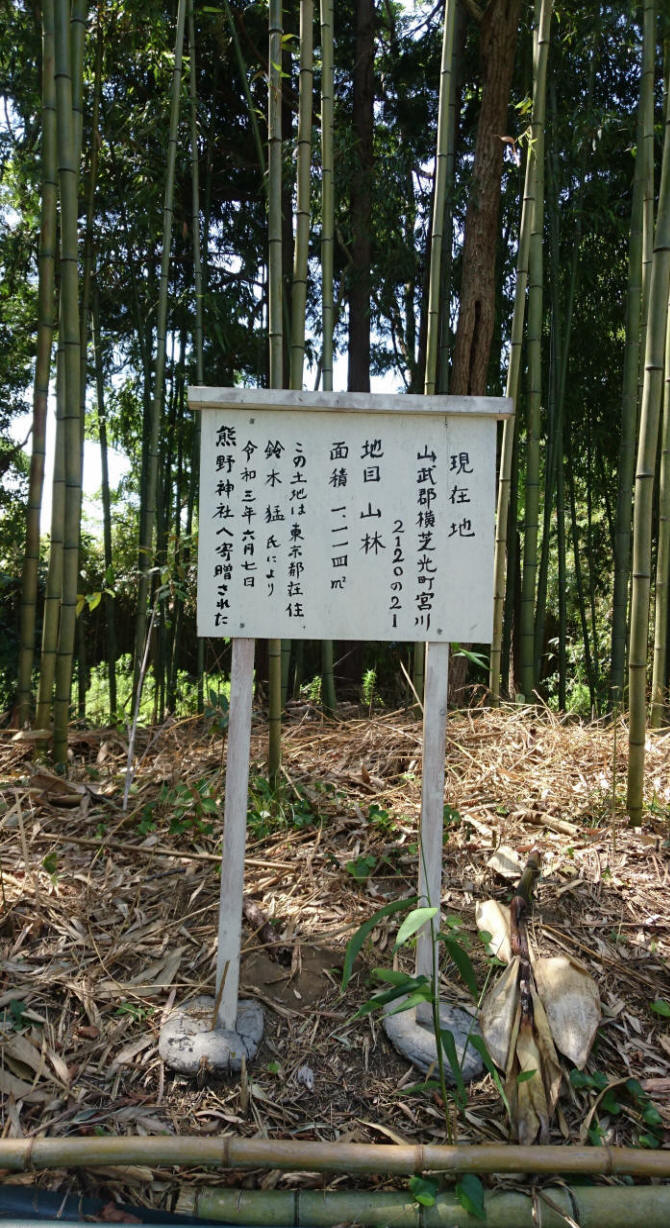 現在地
山武郡横芝光町宮川
2120の21
地目 山林
面積 一、一一四㎡
この土地は東京都在住、
鈴木 猛 氏により
令和三年六月七日
熊野神社へ寄贈された